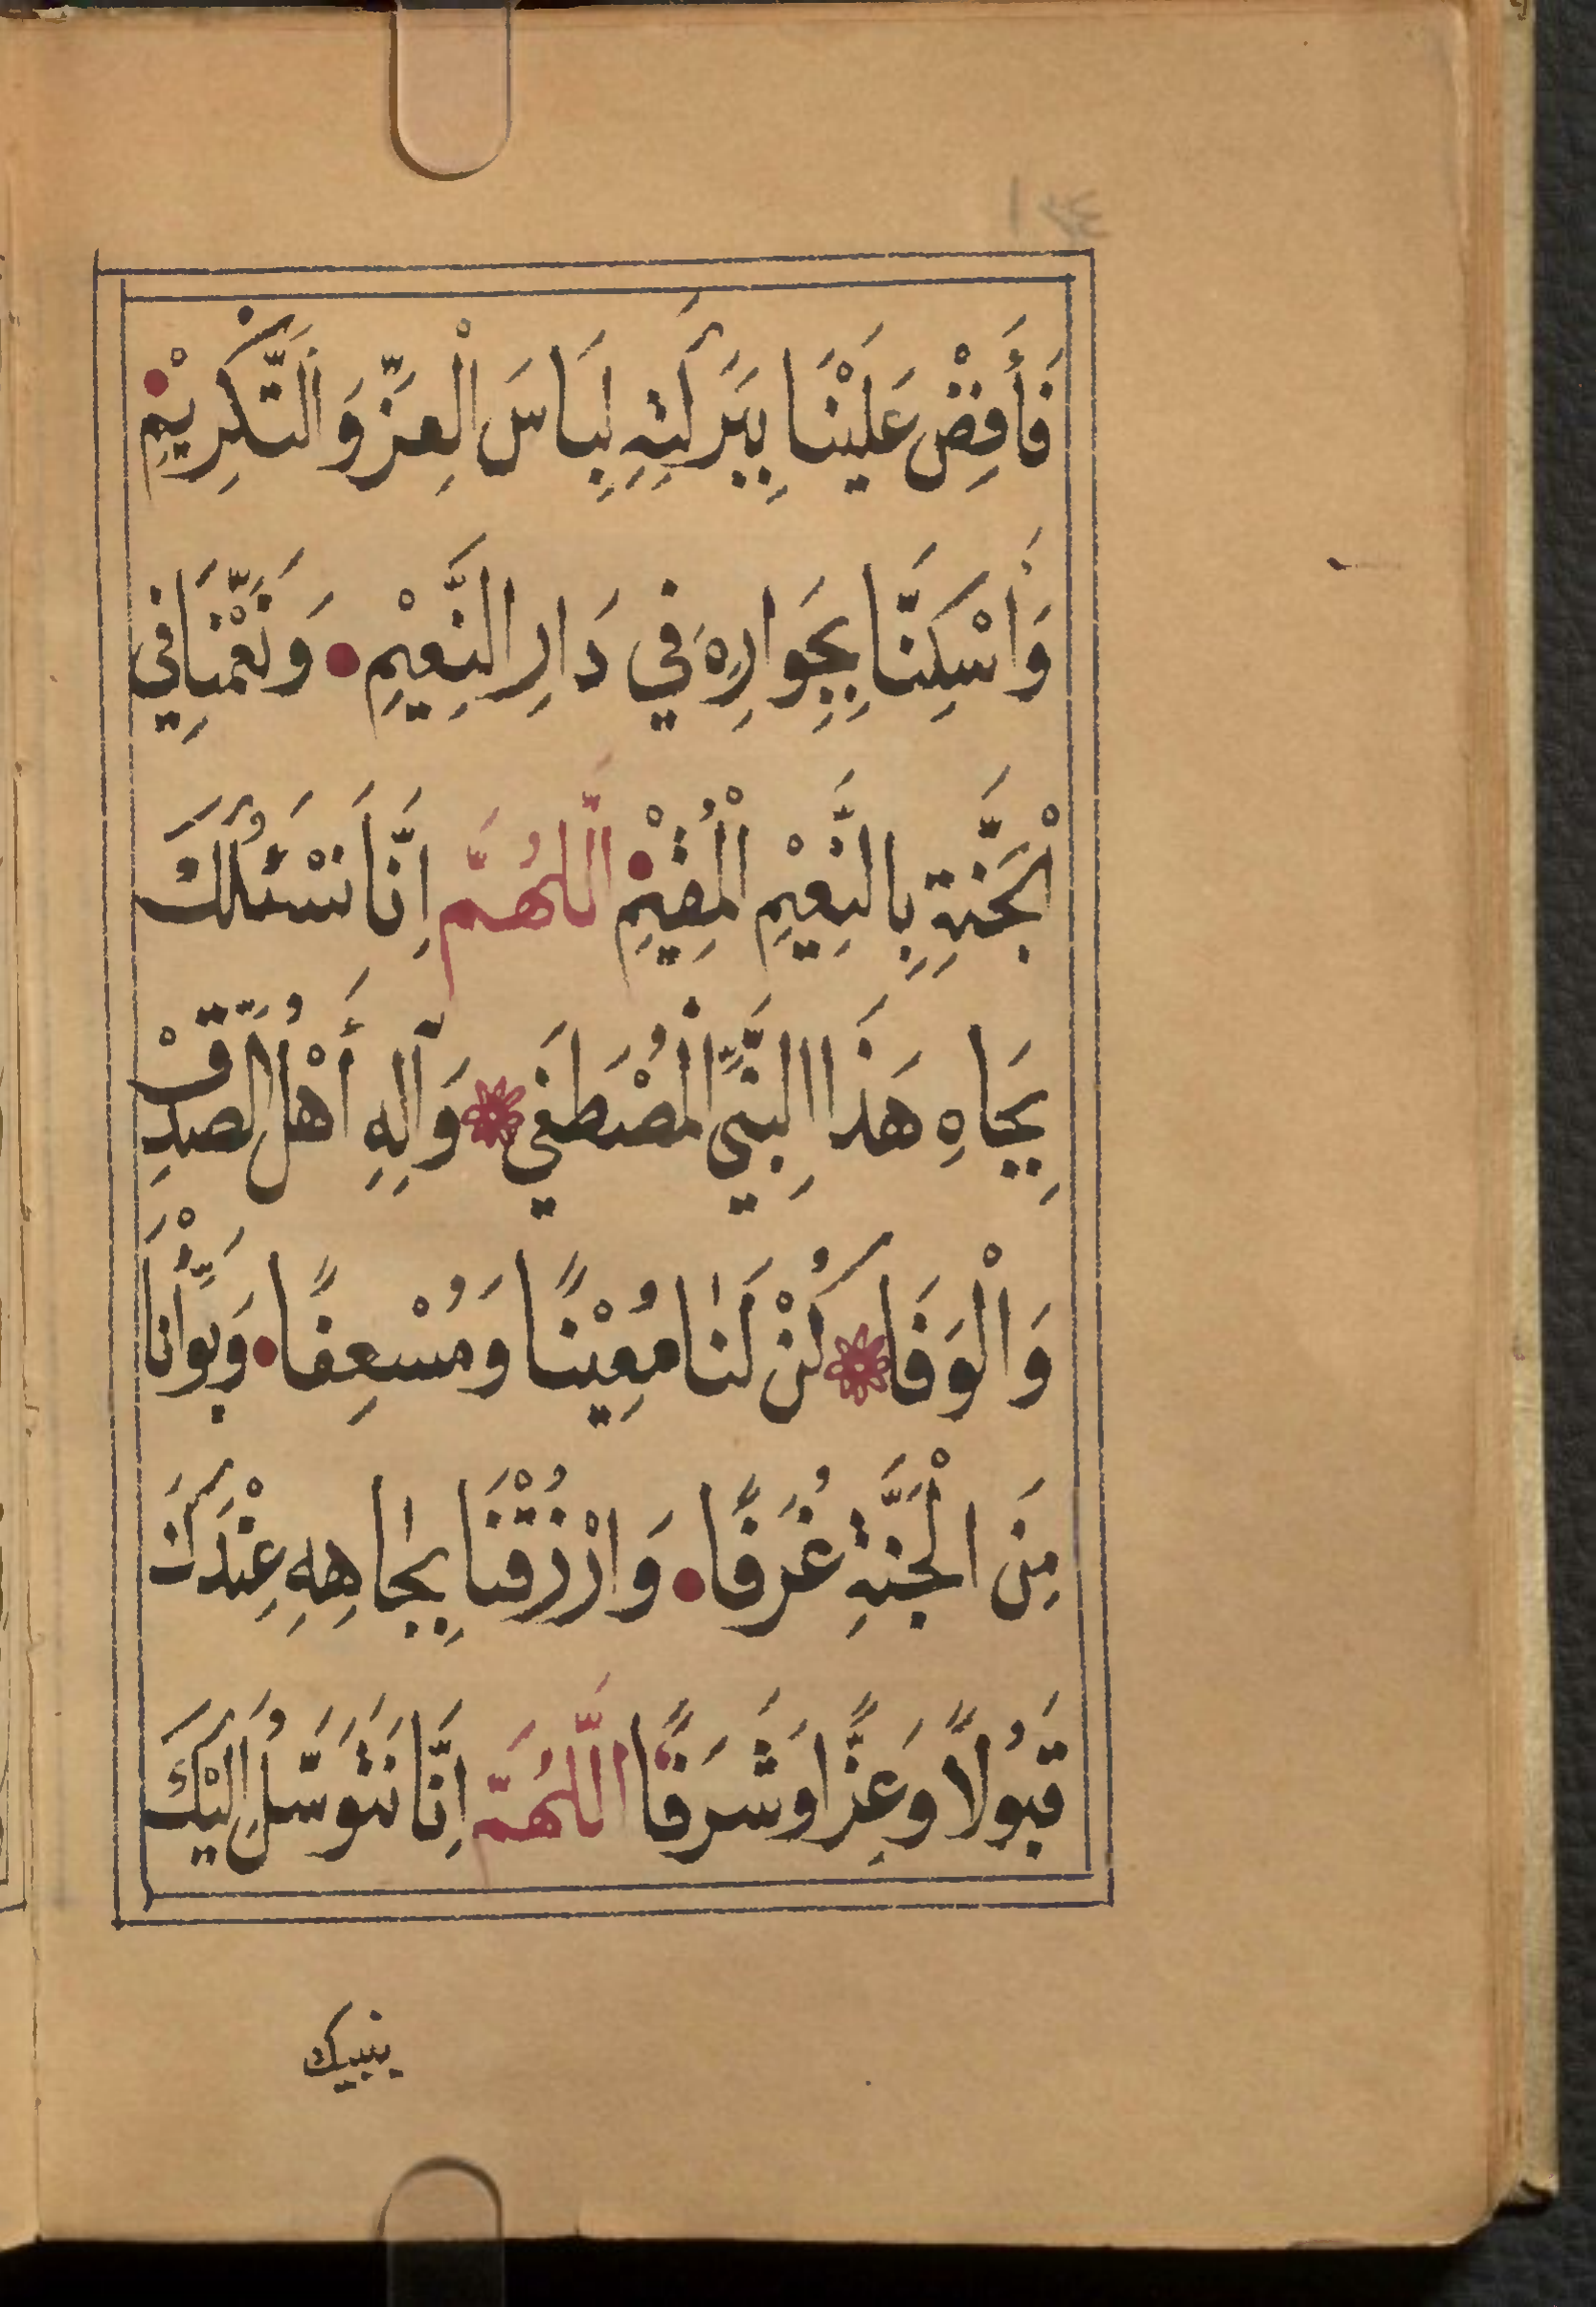 فَأَفِضْ عَلَيْنَا بِبَرَكَتِهِ لِبَاسَ الْعِزِّ وَالتَّكْرِيْمِ
وَأَسْكِنَّا بِجِوَارِهِ فِي دَارِ النَّعِيْمِ وَنَعِّمْنَا فِي
الْجَنَّةِ بِالنَّعِيْمِ الْمُقِيْمِ اَللّٰهُمَّ اِنَّا نَسْئَلُكَ
بِجَاهِ هَذَا النَّبِيِّ الْمُصْطَفَي وَآلِهِ أَهْلُ الصِّدْقِ
وَالْوَفَا كُنْ لَنَا مُعِيْنًا وَمُسْعِفًا وَبَوِّأْنَا
مِنَ الْجَنَّةِ غُرَفًا وَارْزُقْنَا بِجَاهِهِ عِنْدَكَ
قَبُولاً وَعِزًّا وَشَرَفًا اَللّٰهُمَّ اِنَّا نَتَوَسَّلُ اِلَيْكَ
بنبيك